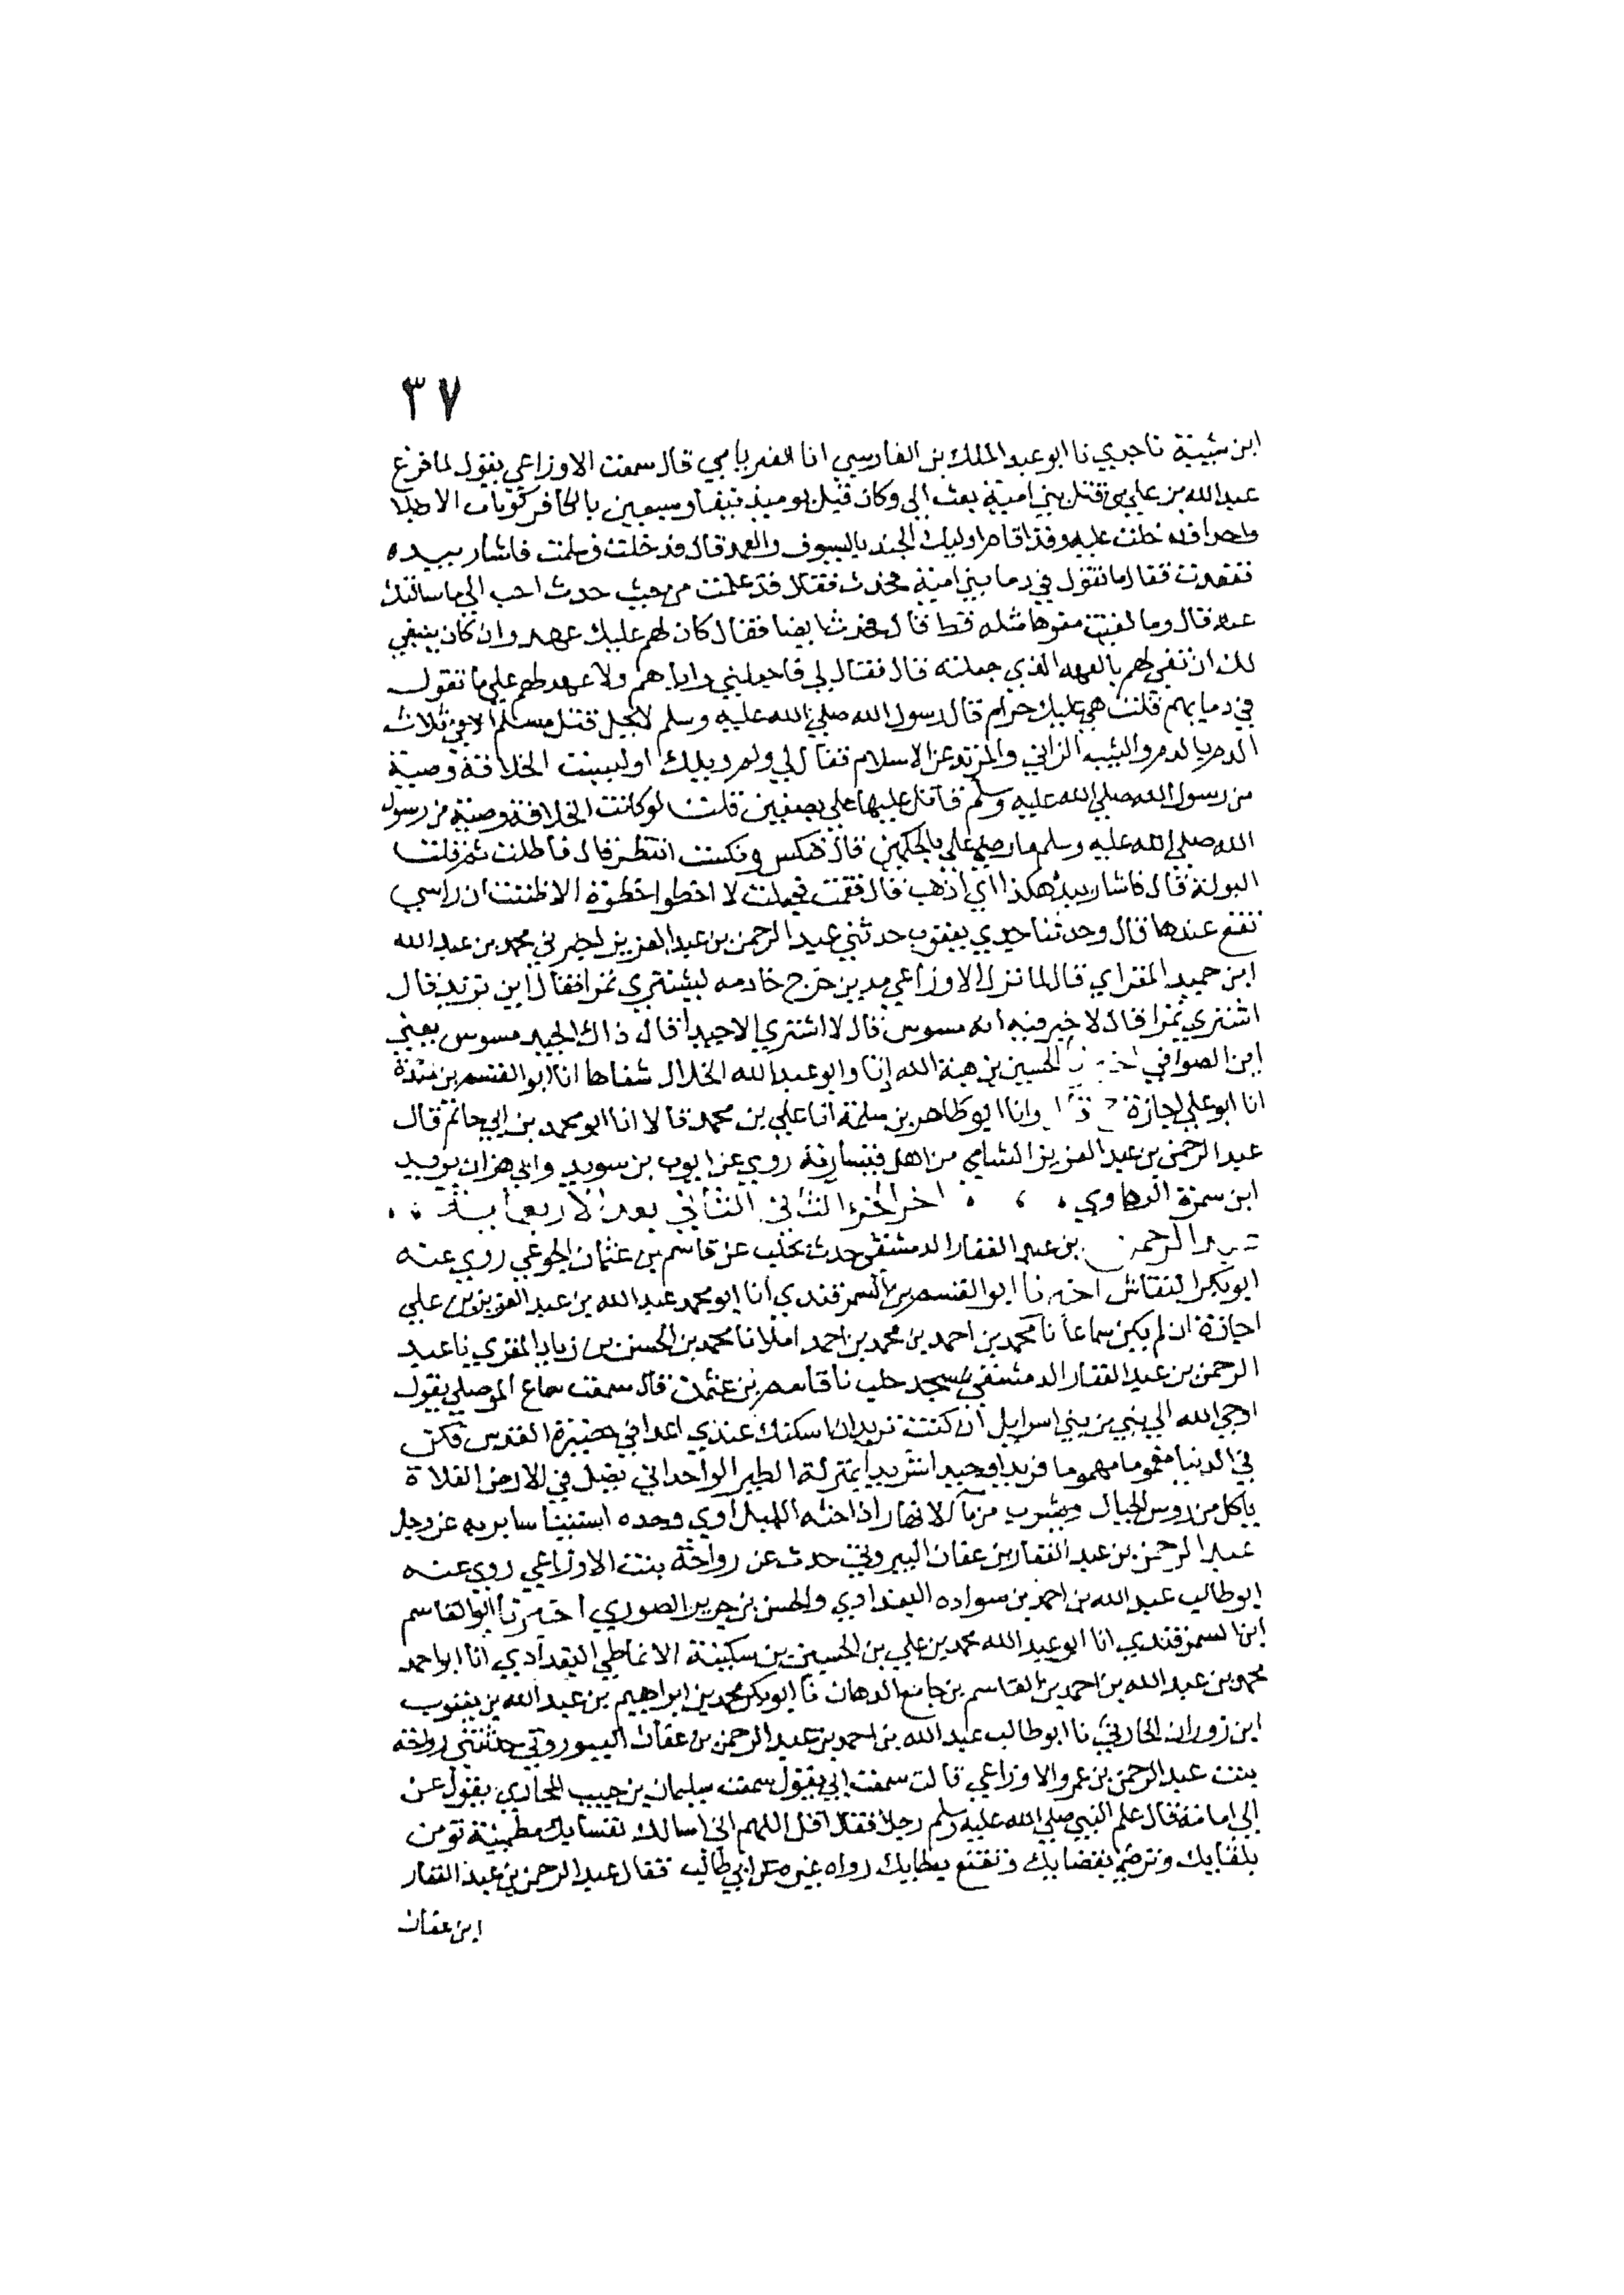 ٣٧
ابن شيبة نا جدي نا ابو عبد الملك بن الفارسي انا الفريابي قال سمعت الاوزاعي يقول لما فرغ
عبد الله بن علي من قتل بني امية بعث الي وكان قتل يوميذ نيفا وسبعين بالكافر كوبات الا رجلا
واحدا فدخلت عليه وقد اقام اوليك الجند بالسيوف والعمد قال فدخلت فسلمت فاشار بيده
فقعدت فقال ما تقول في دما بني امية فحدت فقال قد علمت من حيث حدت احب الي ما سالتك
عنه قال وما لقيت مفوها مثله قط قال فحدت ايضا فقال كان لهم عليك عهد وان كان ينبغي
لك ان تفي لهم بالعهد الذي جعلته قال فقال لي فاجعلني واياهم ولا عهد لهم علي ما تقول
في دمايهم قلت هي عليك حرام قال رسول الله صلي الله عليه وسلم لا يحل قتل مسلم الا في ثلاث
الدم بالدم والثيب الزاني والمرتد عن الاسلام فقال لي ولم ويلك اوليست الخلافة وصية
من رسول الله صلي الله عليه وسلم قاتل عليها علي بصفين قلت لو كانت الخلافة وصية من رسول
الله صلي الله عليه وسلم ما رضي علي بالحكمين قال فنكس ونكست انتظر قال فاطلت ثم قلت
البولة قال فاشار بيده هكذا اي اذهب قال فقمت فجعلت لا اخطوا خطوة الا ظننت ان راسي
تقع عندها قال وحدثنا جدي يعقوب حدثني عبد الرحمن بن عبد العزيز اخبرني محمد بن عبد الله
ابن حميد المقراي قال لما نزل الاوزاعي مدين خرج خادمه ليشتري تمرا فقال اين تريد قال
اشتري تمرا قال لا خير فيه انه مسوس قال لا اشتري الا جيدا قال ذاك الجيد مسوس يعني
ابن الصوافي الحسين بن هبة الله انا وابو عبد الله الخلال شفاها انا ابو القسم بن مندة
انا ابو علي اجازة وانا ابو طاهر بن سلمة انا علي بن محمد قالا انا ابو محمد بن ابي حاتم قال
عبد الرحمن بن عبد العزيز الشامي من اهل قيسارية روي عن ايوب بن سويد وابي هزان يزيد
ابن سمرة الرهاوي اخر الجزء الثاني الثاني بعد الاربعماية
عبد الرحمن بن عبد الغفار الدمشقي حدث بحلب عن قاسم بن عثمان الجوعي روي عنه
ابو بكر النقاش اخبرنا ابو القسم بن السمرقندي انا ابو محمد عبد الله بن عبد العزيز بن علي
اجازة ان لم يكن سماعا نا محمد بن احمد بن محمد بن احمد املا نا محمد بن الحسن بن زياد المقري نا عبد
الرحمن بن عبد الغفار الدمشقي بمسجد حلب نا قاسم بن عثمن قال سمعت سباع الموصلي يقول
اوحي الله الي نبي من بني اسرايل ان كنت تريد ان اسكنك عندي غدا في حضيرة القدس فكن
في الدنيا مغموما مهموما فريدا وحيدا شريدا بمنزلة الطير الواحداني يضل في الارض الفلاة
ياكل من روس الجبال ويشرب من ما الانهار اذا جنه الليل اوي وحده استيناسا بربه عز وجل
عبد الرحمن بن عبد الغفار بن عفان البيروتي حدث عن رواحة بنت الاوزاعي روي عنه
ابو طالب عبد الله بن احمد بن سواده البغدادي والحسن بن جرير الصوري اخبرنا ابو القاسم
ابن السمرقندي انا ابو عبد الله محمد بن علي بن الحسين بن سكينة الانماطي البغدادي انا ابو احمد
محمد بن عبد الله بن احمد بن القاسم بن جامع الدهان نا ابو بكر محمد بن ابراهيم بن عبد الله بن يعقوب
ابن زوران الحارثي نا ابو طالب عبد الله بن احمد بن عبد الرحمن بن عفان البيروتي حدثتني رواحة
بنت عبد الرحمن بن عمرو الاوزاعي قالت سمعت ابي يقول سمعت سليمان بن حبيب المحاربي يقول عن
ابي امامة قال علم النبي صلي الله عليه وسلم رجلا فقال قل اللهم اني اسالك نفسا بك مطمينة تومن
بلقايك وترضي بقضايك وتقنع بعطايك رواه غيره عن ابي طالب فقال عبد الرحمن بن عبد الغفار
ابن عفان